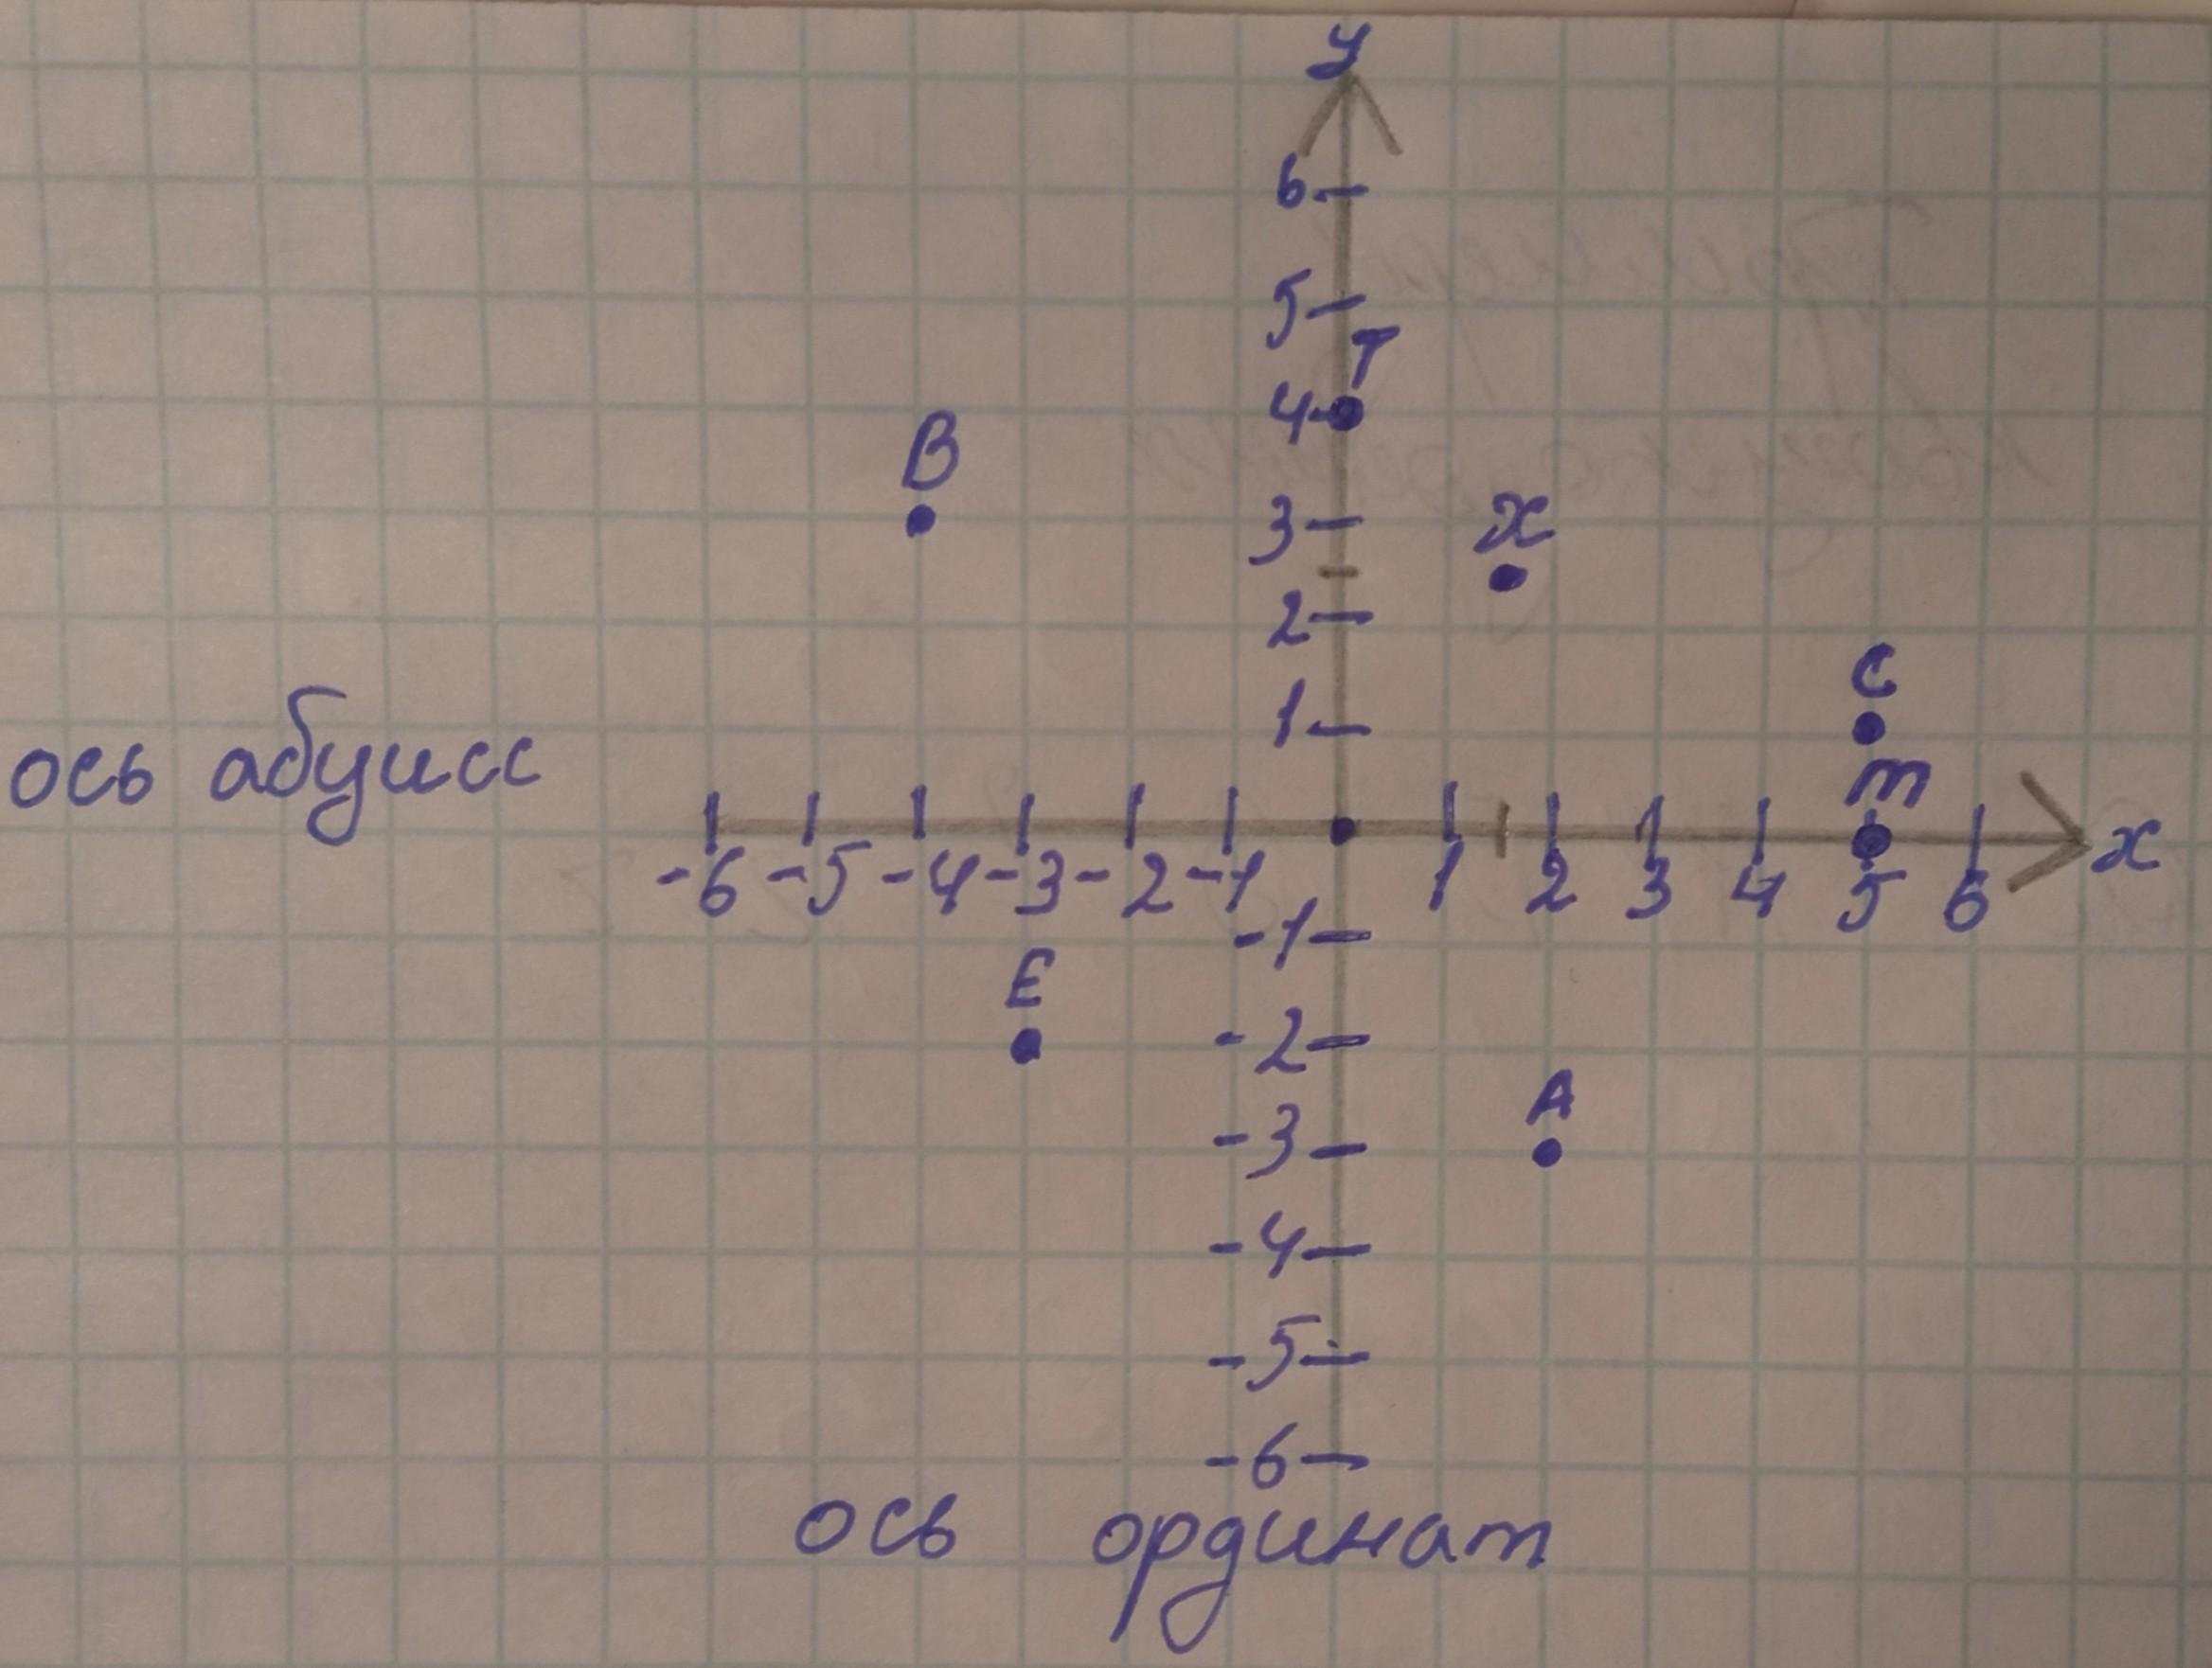 y
6
5
T
4
B
3
x
2
C
1
m
ось абцисс
-6 -5 -4 -3 -2 -1 1 2 3 4 5 6 x
-1
E
-2
A
-3
-4
-5
-6
ось ординат